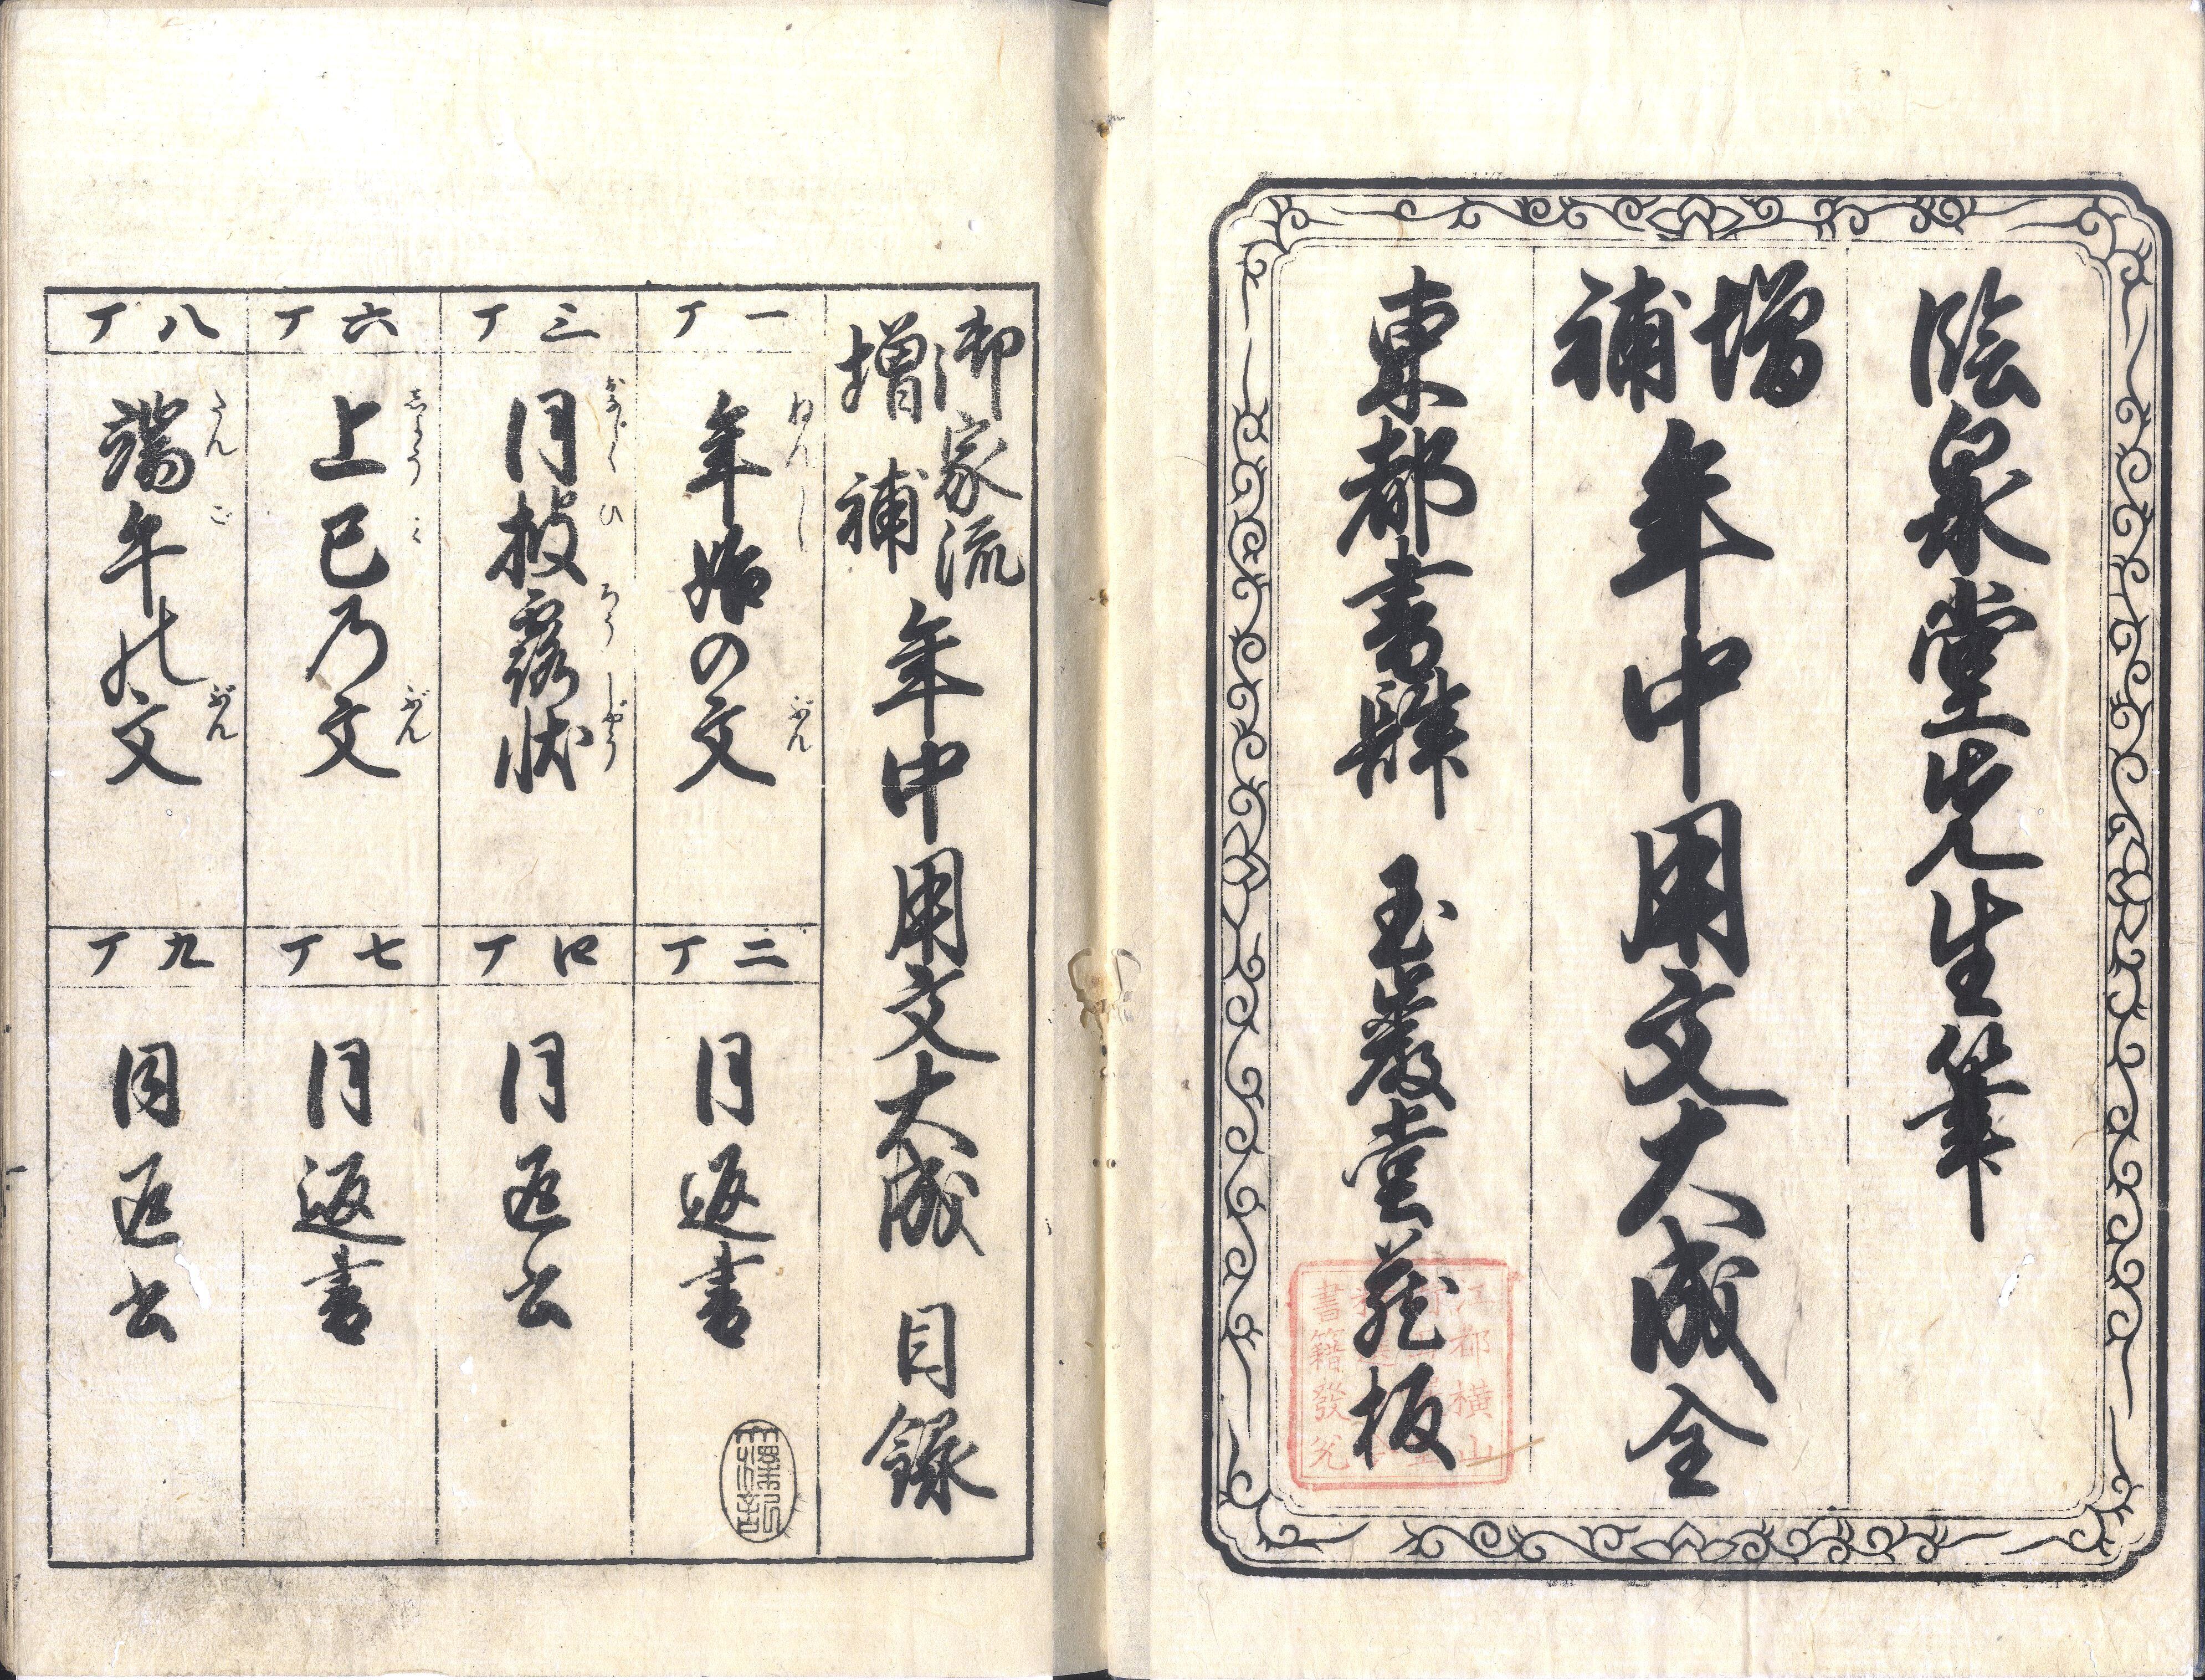 陰泉堂先生筆
増補
年中用文大成全
東都書肆 玉巌堂蔵板
江都横山
書籍發兌
御家流
増補
年中用文大成 目録
一丁
年始の文
ねんし ぶん
二丁
同返書
三丁
同披露状
おなじくひろうじやう
四丁
同返書
六丁
上巳乃文
ぶん
七丁
同返書
八丁
端午の文
たんご ぶん
九丁
同返書